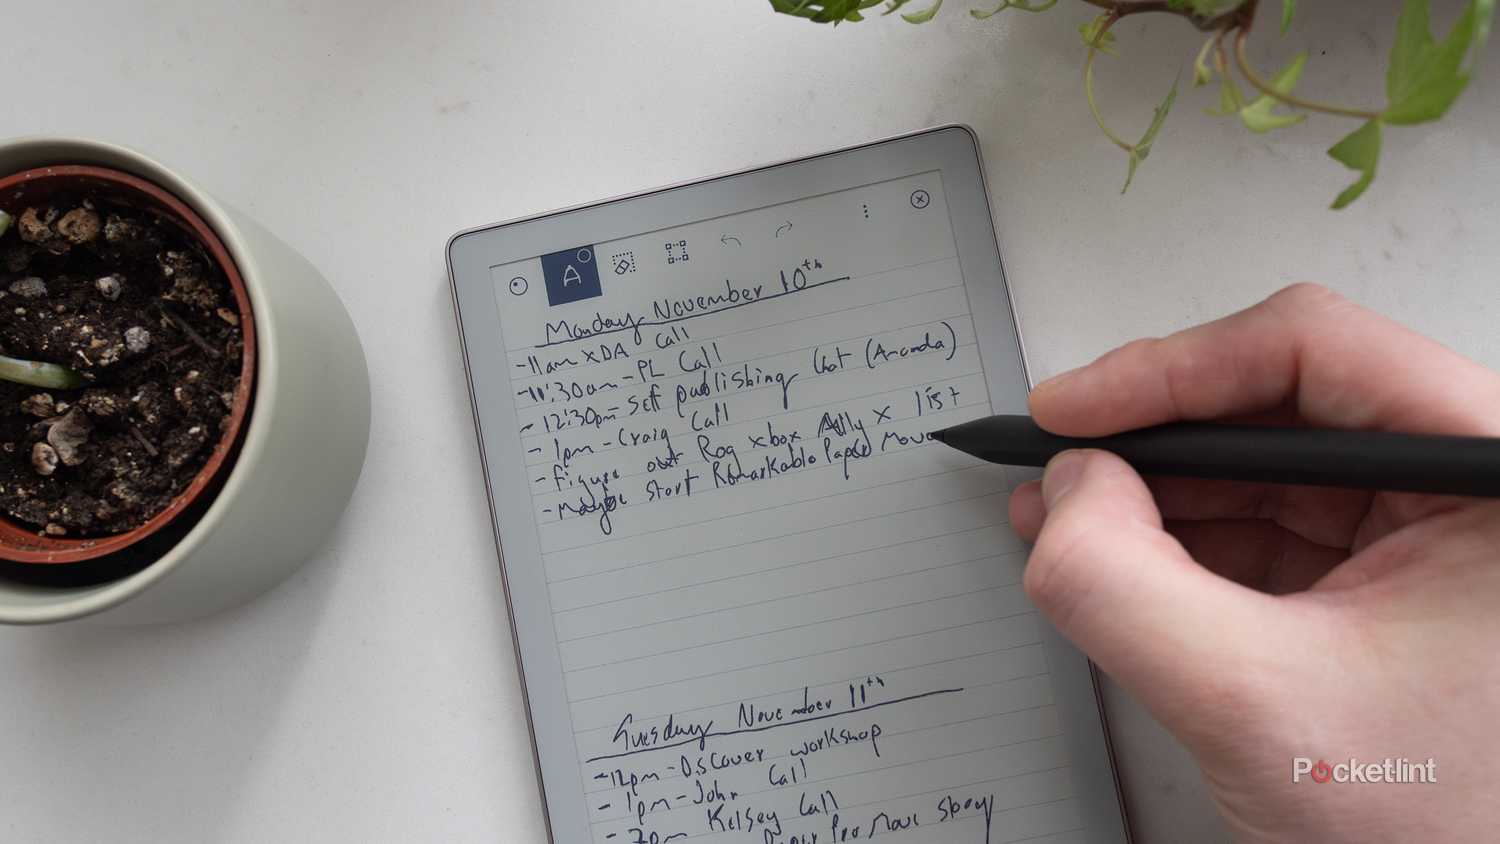 A
Monday November 10th
-11am XDA Call
-11:30am-PL Call
-12:30pm-Self publishing Chat (Amanda)
-1pm-Craig Call
-figure out Rog xbox Ally x list
-maybe start Remarkable Paper Move
Tuesday November 11th
-12pm-Discover workshop
-1pm-John Call
-2pm Kelsey Call
Paper Pro Move story
Pocketlint